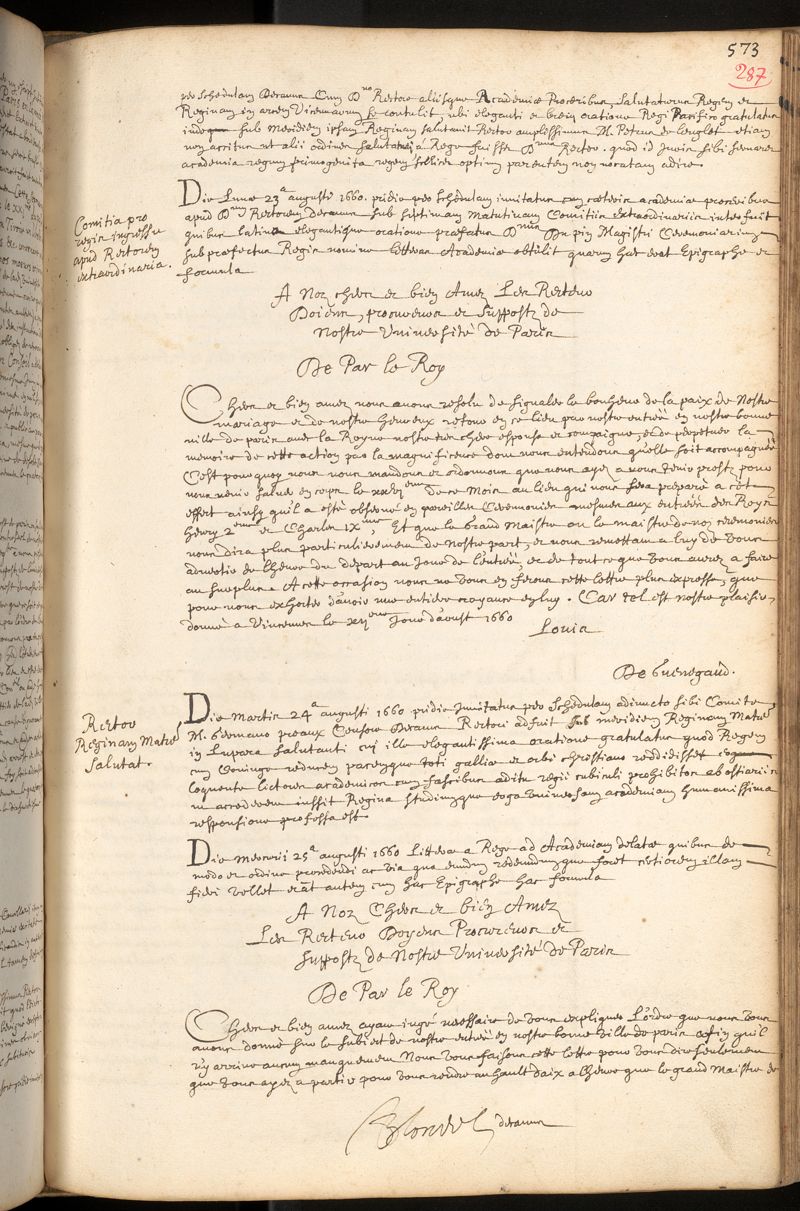 573
287
per schedulam Decanus Cum D^no Rectore aliisque Academiæ Proceribus, salutaturus Regem et
Reginam in arcem Vicenarum se contulit, ubi eleganti et brevi oratione Regi Pacifico gratulatus
sub Meridiem ipsam Reginam salutavit Rector amplissimus M. Petrus de Lenglet etiam
non accitus ut alii ordines salutatum a Rege fuisse D^nus Rector. quod id Juris sibi servaret
academia regum primogenita regem scilicet optim parentem non vocatam adire.
Comitia pro
regis ingressu
apud Rectorem
extraordinaria.
Die Lunæ 23^a augusti 1660. pridie per schedulam invitatus cum cæteris academiæ proceribus
apud D^num Rectorem decanus sub septimam matutinam Comitiis extraordinariis interfuit
quibus latina elegantique oratione præfatus D^nus Du pin Magistri Ceremoniarum
subpræfectus Regis nomine litteras Academiæ obtulit quarum hæc erat Epigraphe et
formula
A Noz chers et bien Amez Les Recteur
Doiens, procureurs et suppostz de
Nostre Université de Paris
De Par le Roy
Chers et bien amez nous avons resolu de signaler le bonheur de la paix de Nostre
mariage et de nostre heureux retour en ce lieu par nostre entrée en nostre bonne
ville de paris avec la Royne nostre tres chere espouse et compaigne, et de perpetuer la
memoire de cette action par la magnificence dont nous entendons qu'elle soit accompagnée
C'est pourquoy nous vous mandons et ordonnons que vous ayez a vous tenir prestz pour
nous venir saluer en corps le xxvj^eme de ce Mois au lieu qui vous sera preparé a cet
effect ainsy qu'il a esté observé en pareilles Ceremonies mesmes aux entrées des Roys
henry 2^eme et Charles ix^me, Et que le Grand Maistre ou le maistre de nos ceremonies
vous dira plus particulierement de Nostre part, et nous remettans a luy de vous
advertir de l'heure du depart au Jour de l'entrée, et de tout ce que vous aurez a faire
au surplus. A cette occasion nous ne vous en ferons cette lettre plus expresse, que
pour vous exhorter d'avoir une entiere croyance en luy. Car tel est nostre plaisir,
donné a Vincennes le xij^eme Jour d'aoust 1660
Louis
De Guenegaud.
Rector
Reginam Matrem
salutat.
Die Martis 24^a augusti 1660 pridie Invitatus per schedulam adjuncto sibi Comite
M. Germano preaux Censore Decanus Rectori adfuit sub meridiem Reginam Matrem
in Lupara salutanti cui ille elegantissima oratione gratulatus quod Regem
cum Coniuge reducem pacemque toti galliæ et orbi christiano reddidisset
Loquente lictores academicos cum fascibus aditu regii cubiculi prohibitos ab ostiariis
accedere iussit Regina studiumque erga universam academiam humanissima
responsione professa est.
Die Mercurii 25^a augusti 1660 Litteræ a Rege ad Academiam delatæ quibus de
modo et ordine procedendi ac via qua eundum redeundumque foret certiorem illam
fieri vellet erat autem cum hac Epigraphe hæc formula
A Noz Chers et bien Amez
Les Recteur Doyens Procureurs et
suppostz de Nostre Université de Paris
De Par le Roy
Chers et bien amez ayant jugé necessaire de vous expliquer L'ordre que nous vous
avons donné sur le subiect de nostre entrée en nostre bonne Ville de paris afin qu'il
n'y arrive aucun manquement Nous vous faisons cette lettre pour vous dire seulement
que vous ayez a partir pour vous rendre au hault daix a l'heure que le grand Maistre de
Blondel decanus